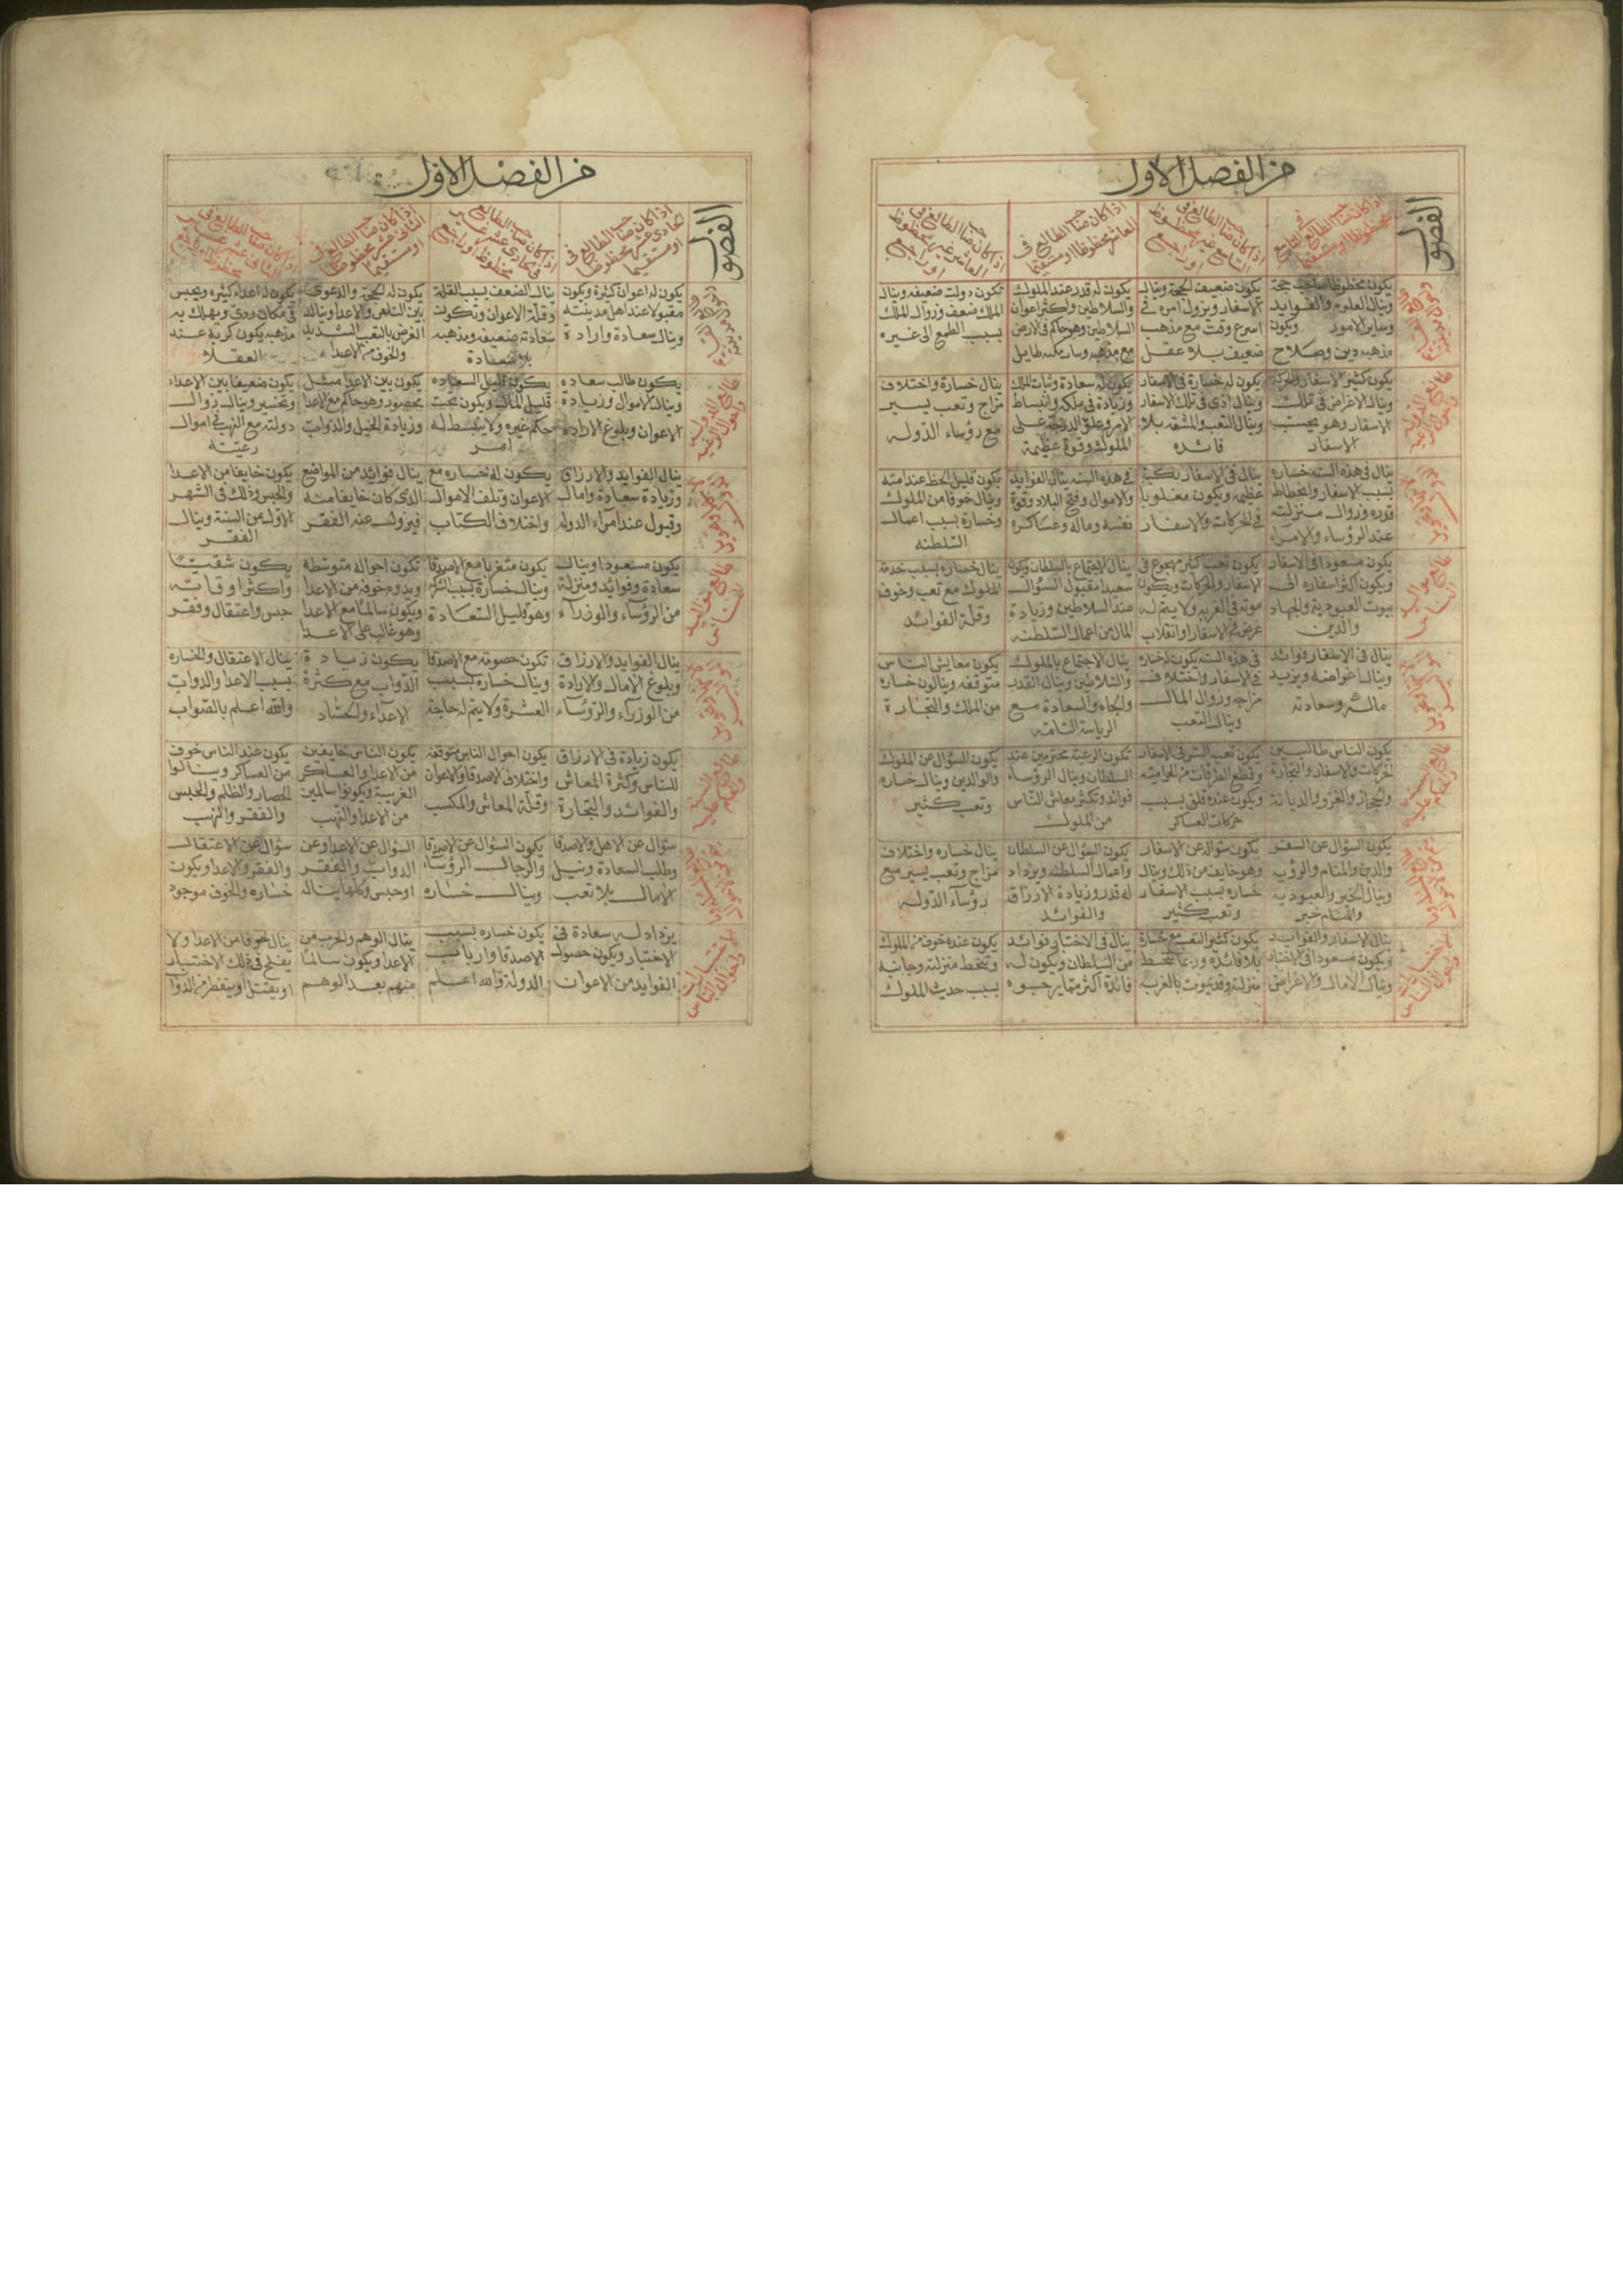 من الفصل الاول
الفصول
اذا كان صاحب الطالع في التاسع
محظوظا او مستقيما
اذا كان صاحب الطالع في
التاسع غير محظوظ
او راجع
اذا كان صاحب الطالع في
العاشر محظوظا او مستقيما
اذا كان صاحب الطالع في
العاشر غير محظوظ
او راجع
يكون محظوظا صاحب حجة
وينال العلوم والفوايد
وساير الامور ويكون
مذهبه دين وصلاح
يكون ضعيف الحجة وينال
الاسفار وينزول امره في
اسرع وقت مع مذهب
ضعيف بلا عقل
يكون له قدر عند الملوك
والسلاطين واكثر اعوان
السلاطين وهو حاكم في الارض
مع مذهبه
تكون دولته ضعيفه وينال
الملك ضعف وزوال الملك
بسبب الطمع الى غيره
طالع الدوله
واحوال الرعيه
يكون كثير الاسفار والحركة
وينال الاغراض في تلك
الاسفار وهو بحسب
الاسفار
يكون له خسارة في الاسفار
وينال اذى في تلك الاسفار
وينال التعب والمشقه بلا
فائده
يكون له سعادة وثبات الملك
وزيادة في ملكه وانبساط
الامر وعلو الدرجة على
الملوك وقوة عظيمة
ينال خسارة واختلاف
مزاج وتعب يسير
مع رؤساء الدوله
ينال في هذه السنه خساره
بسبب الاسفار وانحطاط
قدره وزوال منزلته
عند الرؤساء والامراء
ينال في الاسفار نكبة
عظيمه ويكون مغلوبا
في الحركات والاسفار
في هذه السنه ينال الفوايد
والاموال وفتح البلاد وقوة
نفسه وماله وعساكره
يكون قليل الحظ عند امته
وينال خوفا من الملوك
وخسارة بسبب اعمال
السلطنه
طالع مواليد
الناس
يكون مسعودا في الاسفار
ويكون اكثر اسفاره الى
بيوت العبوديه والجهاد
والدين
يكون تعب كثير
الاسفار والحركات ويكون
موته في الغربه ولا يتم له
غرض في الاسفار او انقلاب
ينال الاجتماع بالسلطان
سعيدا مقبول السؤال
عند السلاطين وزيادة
المال من اعمال السلطنه
ينال خساره بسبب خدمة
الملوك مع تعب وخوف
وقلة الفوائد
ينال في الاسفار فوائد
وينال اغراضه ويزيد
ماله وسعادته
في هذه السنه يكون له خساره
في الاسفار واختلاف
مزاجه وزوال المال
وينال التعب
ينال الاجتماع بالملوك
والسلاطين وينال القدر
والجاه والسعادة مع
الرياسة التامه
يكون معايش الناس
متوقفه وينالون خساره
من الملك والتجارة
يكون الناس طالبين
الحركات والاسفار والتجارة
والحجاز والغزو والديانة
يكون تعب البشر في الاسفار
وقطع الطرقات من الحراميه
ويكون عنده قلق بسبب
حركات العساكر
تكون الرعية محترمين عند
السلطان وينال الرؤساء
فوائد وتكثر معاش الناس
من الملوك
يكون السؤال عن الملوك
والوالدين وينال خساره
وتعب كثير
يكون السؤال عن السفر
والدين والمنام والرؤيه
وينال الخير والعبوديه
والمنام خير
يكون سؤاله عن الاسفار
وهو خايف من ذلك وينال
خساره بسبب الاسفار
وتعب كثير
يكون السؤال عن السلطان
واعمال السلطنه ويزداد
له قدر وزيادة الارزاق
والفوائد
ينال خساره واختلاف
مزاج وتعب يسير مع
رؤساء الدوله
ينال الاسفار والفوايد
ويكون مسعودا في الاختيار
وينال الامال والاغراض
يكون كثير التعب مع خسارة
بلا فائده وربما تنحط
منزلته وقد يموت بالغربه
ينال في الاختيار فوائد
من السلطان ويكون له
فائدة اكثر مما يرجوه
يكون عنده خوف من الملوك
وتنحط منزلته وجانبه
بسبب حديث الملوك
من الفصل الاول
الفصول
اذا كان صاحب الطالع في
الحادي عشر محظوظا
او مستقيما
اذا كان صاحب الطالع
في الحادي عشر غير
محظوظ او راجع
اذا كان صاحب الطالع في
الثاني عشر محظوظا
او مستقيما
اذا كان صاحب الطالع في
الثاني عشر غير
محظوظ او راجع
يكون له اعوان كثيرة ويكون
مقبولا عند اهل مدينته
وينال سعادة وارادة
ينال الضعف بسبب القلة
وقلة الاعوان وتكون
سعادته ضعيفه ومذهبه
بلا سعادة
يكون له الحجة والدعوى
بين الناس والاعدا وينال
الغرض بالتعب الشديد
والخوف من الاعدا
يكون له اعداء كثيره ويحبس
في مكان ردي ويهلك به
مذهبه يكون كريه عند
العقلاء
طالع الدوله
واحوال الرعيه
يكون طالب سعاده
وينال الاموال وزيادة
الاعوان وبلوغ الارادة
يكون قليل السعاده
قليل المال ويكون تحت
حكم غيره ولا ينبسط له
امر
يكون بين الاعدا مثل
محصور وهو حاكم مع الاعدا
وزيادة الخيل والدواب
يكون ضعيفا بين الاعداء
وتخسر وينال زوال
دولته مع النهب في اموال
رعيته
ينال الفوايد والارزاق
وزيادة سعادة وامال
وقبول عند امراء الدوله
يكون له خساره مع
الاعوان وتلف الاموال
واختلاف الكتاب
ينال فوائد من المواضع
الذي كان خايفا منه
فيزول عنه الفقر
يكون خايفا من الاعدا
والحبس وذلك في الشهر
الاول من السنة وينال
الفقر
طالع مواليد
الناس
يكون مسعودا وينال
سعادة وفوائد ومنزلة
من الرؤساء والوزراء
يكون متغربا مع الاصدقا
وينال خسارة بسبب الشركه
وهو قليل السعادة
تكون احواله متوسطه
ويدوم خوفه من الاعدا
ويكون سالما مع الاعدا
وهو غالب على الاعدا
يكون شقيا
واكثر اوقاته
حبس واعتقال وفقر
ينال الفوايد والارزاق
وبلوغ الامال والارادة
من الوزراء والرؤساء
تكون خصومته مع الاصدقا
وينال خساره بسبب
العشرة ولا يتم له حاجة
يكون زيادة
الدواب مع كثرة
الاعداء والحساد
ينال الاعتقال والخساره
بسبب الاعدا والدواب
والله اعلم بالصواب
يكون زيادة في الارزاق
للناس وكثرة المعاش
والفوائد والتجارة
يكون احوال الناس متوقفه
واختلاف الاصدقا والاعوان
وقلة المعاش والمكسب
يكون الناس خايفين
من الاعدا والعساكر
الغريبة ويكونوا سالمين
من الاعدا والنهب
يكون عند الناس خوف
من العساكر وينالوا
الحصار والظلم والحبس
والفقر والنهب
سؤال عن الاهل والاصدقا
وطلب السعادة ونيل
الامال بلا تعب
يكون السؤال عن الاصدقا
والرجال الرؤساء
وينال خساره
السؤال عن الاعدا وعن
الدواب والفقر
او حبس
سؤال عن الاعتقال
والفقر والاعدا ويكون
خساره والخوف موجود
يزداد له سعادة في
الاختيار ويكون حصول
الفوايد من الاعوان
يكون خساره بسبب
الاصدقا وارباب
الدولة والله اعلم
ينال الوهم والحرب من
الاعدا ويكون سالما
منهم بعد الوهم
ينال خوفا من الاعدا ولا
يفلح في ذلك الاختيار